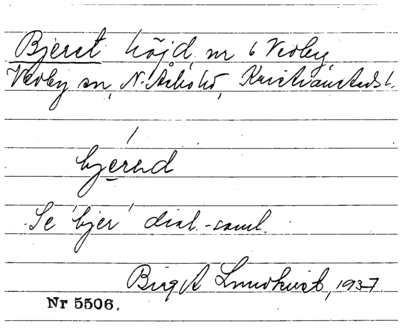 Bjeret höjd nr 6 Verby,
Verby sn, N. Åsbo hd, Kristianstads l.
bjerəd
Se 'bjer' dial.-saml.
Birgit Lundkvist, 1937
Nr 5506.